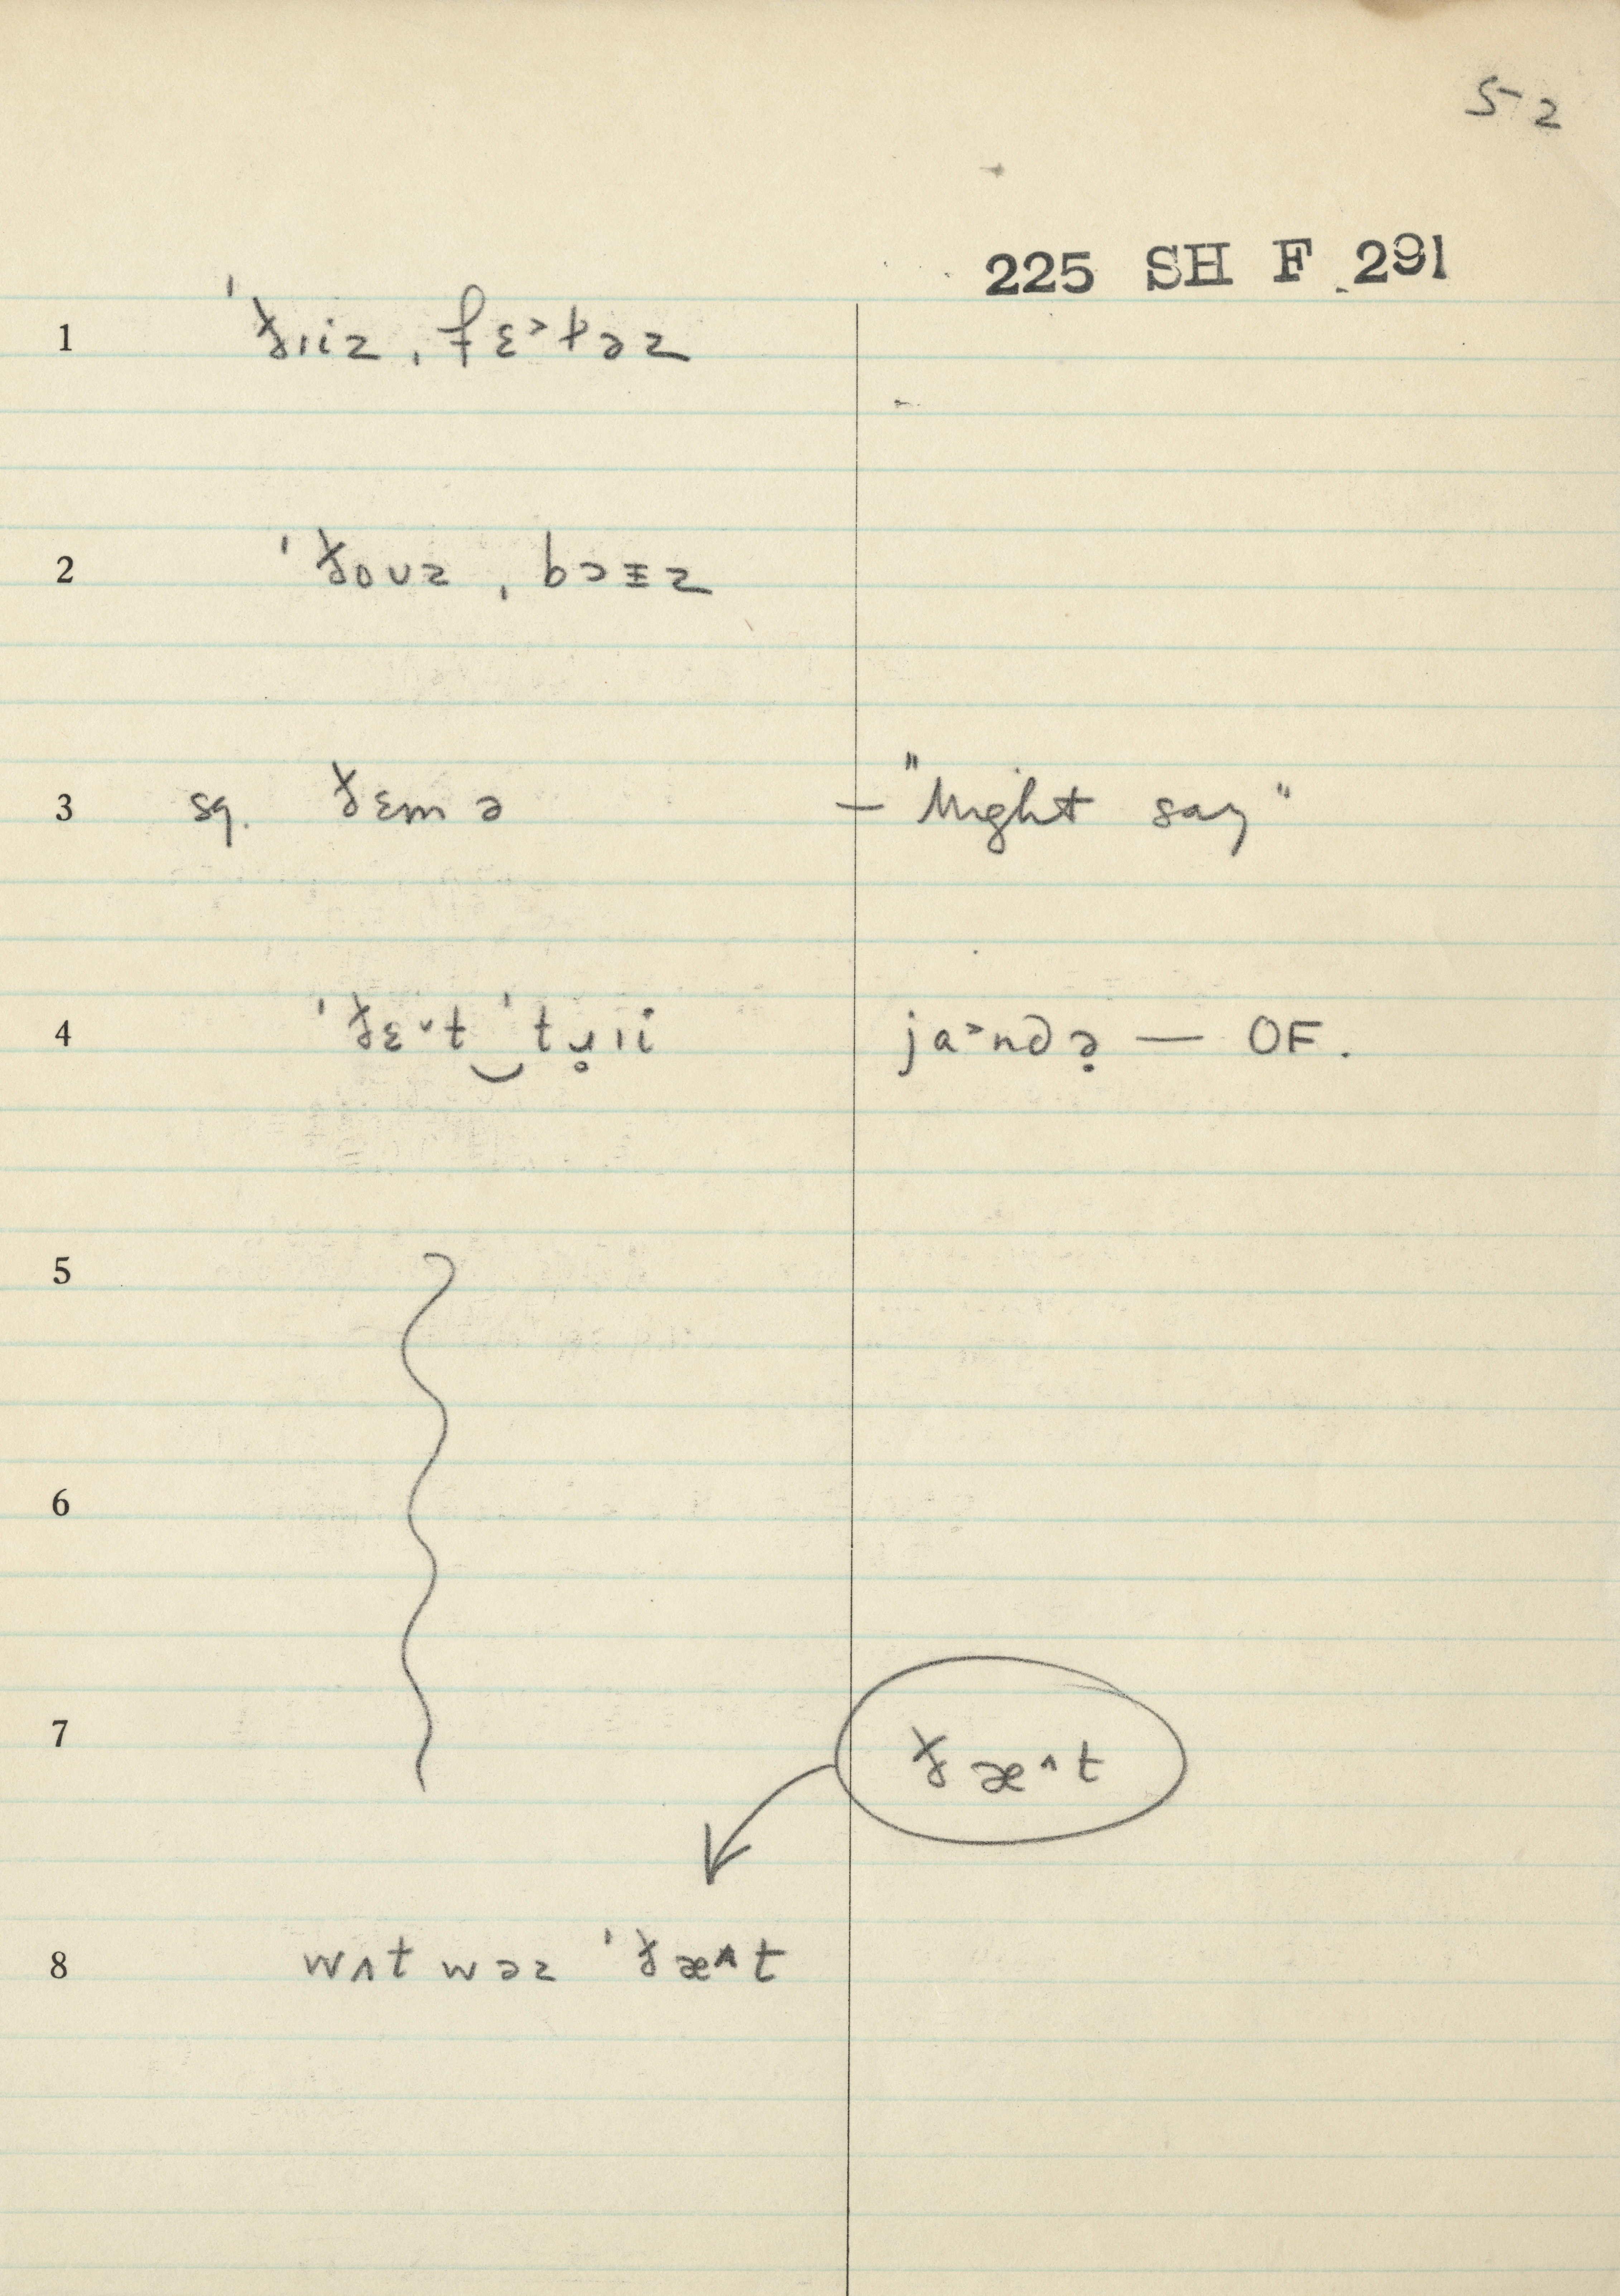 52
225 SH F 291
1 ˈðɪiz ˌfɛ˃ɫəz
2 ˈðoʊz ˌbɔɪz
3 sq. ðɛm ə — "Might say"
4 ˈðɛ˅t‿ˈtɹ̥ɪi ja˃ndə̣ — OF.
5
6
7 ðæ˄t
8 wʌt wəz ˈðæ˄t